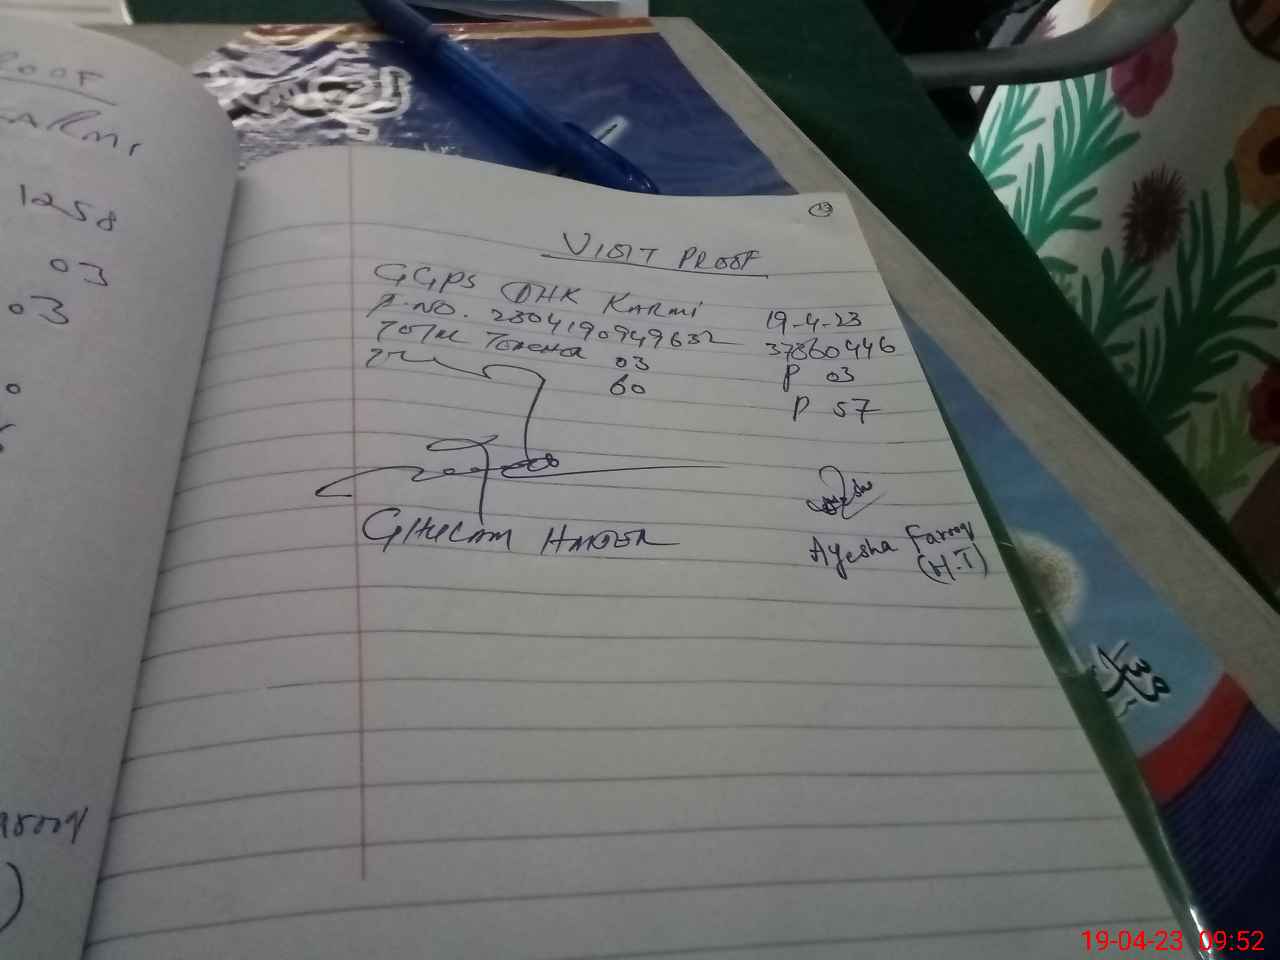 ROOF
KARMI
1258
03
03
arooq
)
19
VISIT PROOF
GGPS DHK KARMI 19-4-23
P.NO. 2304190949632 37360446
TOTAL TEACHER 03 P 03
60 P 57
GHULAM HAIDER
Ayesha Farooq
(H.T)
19-04-23 09:52